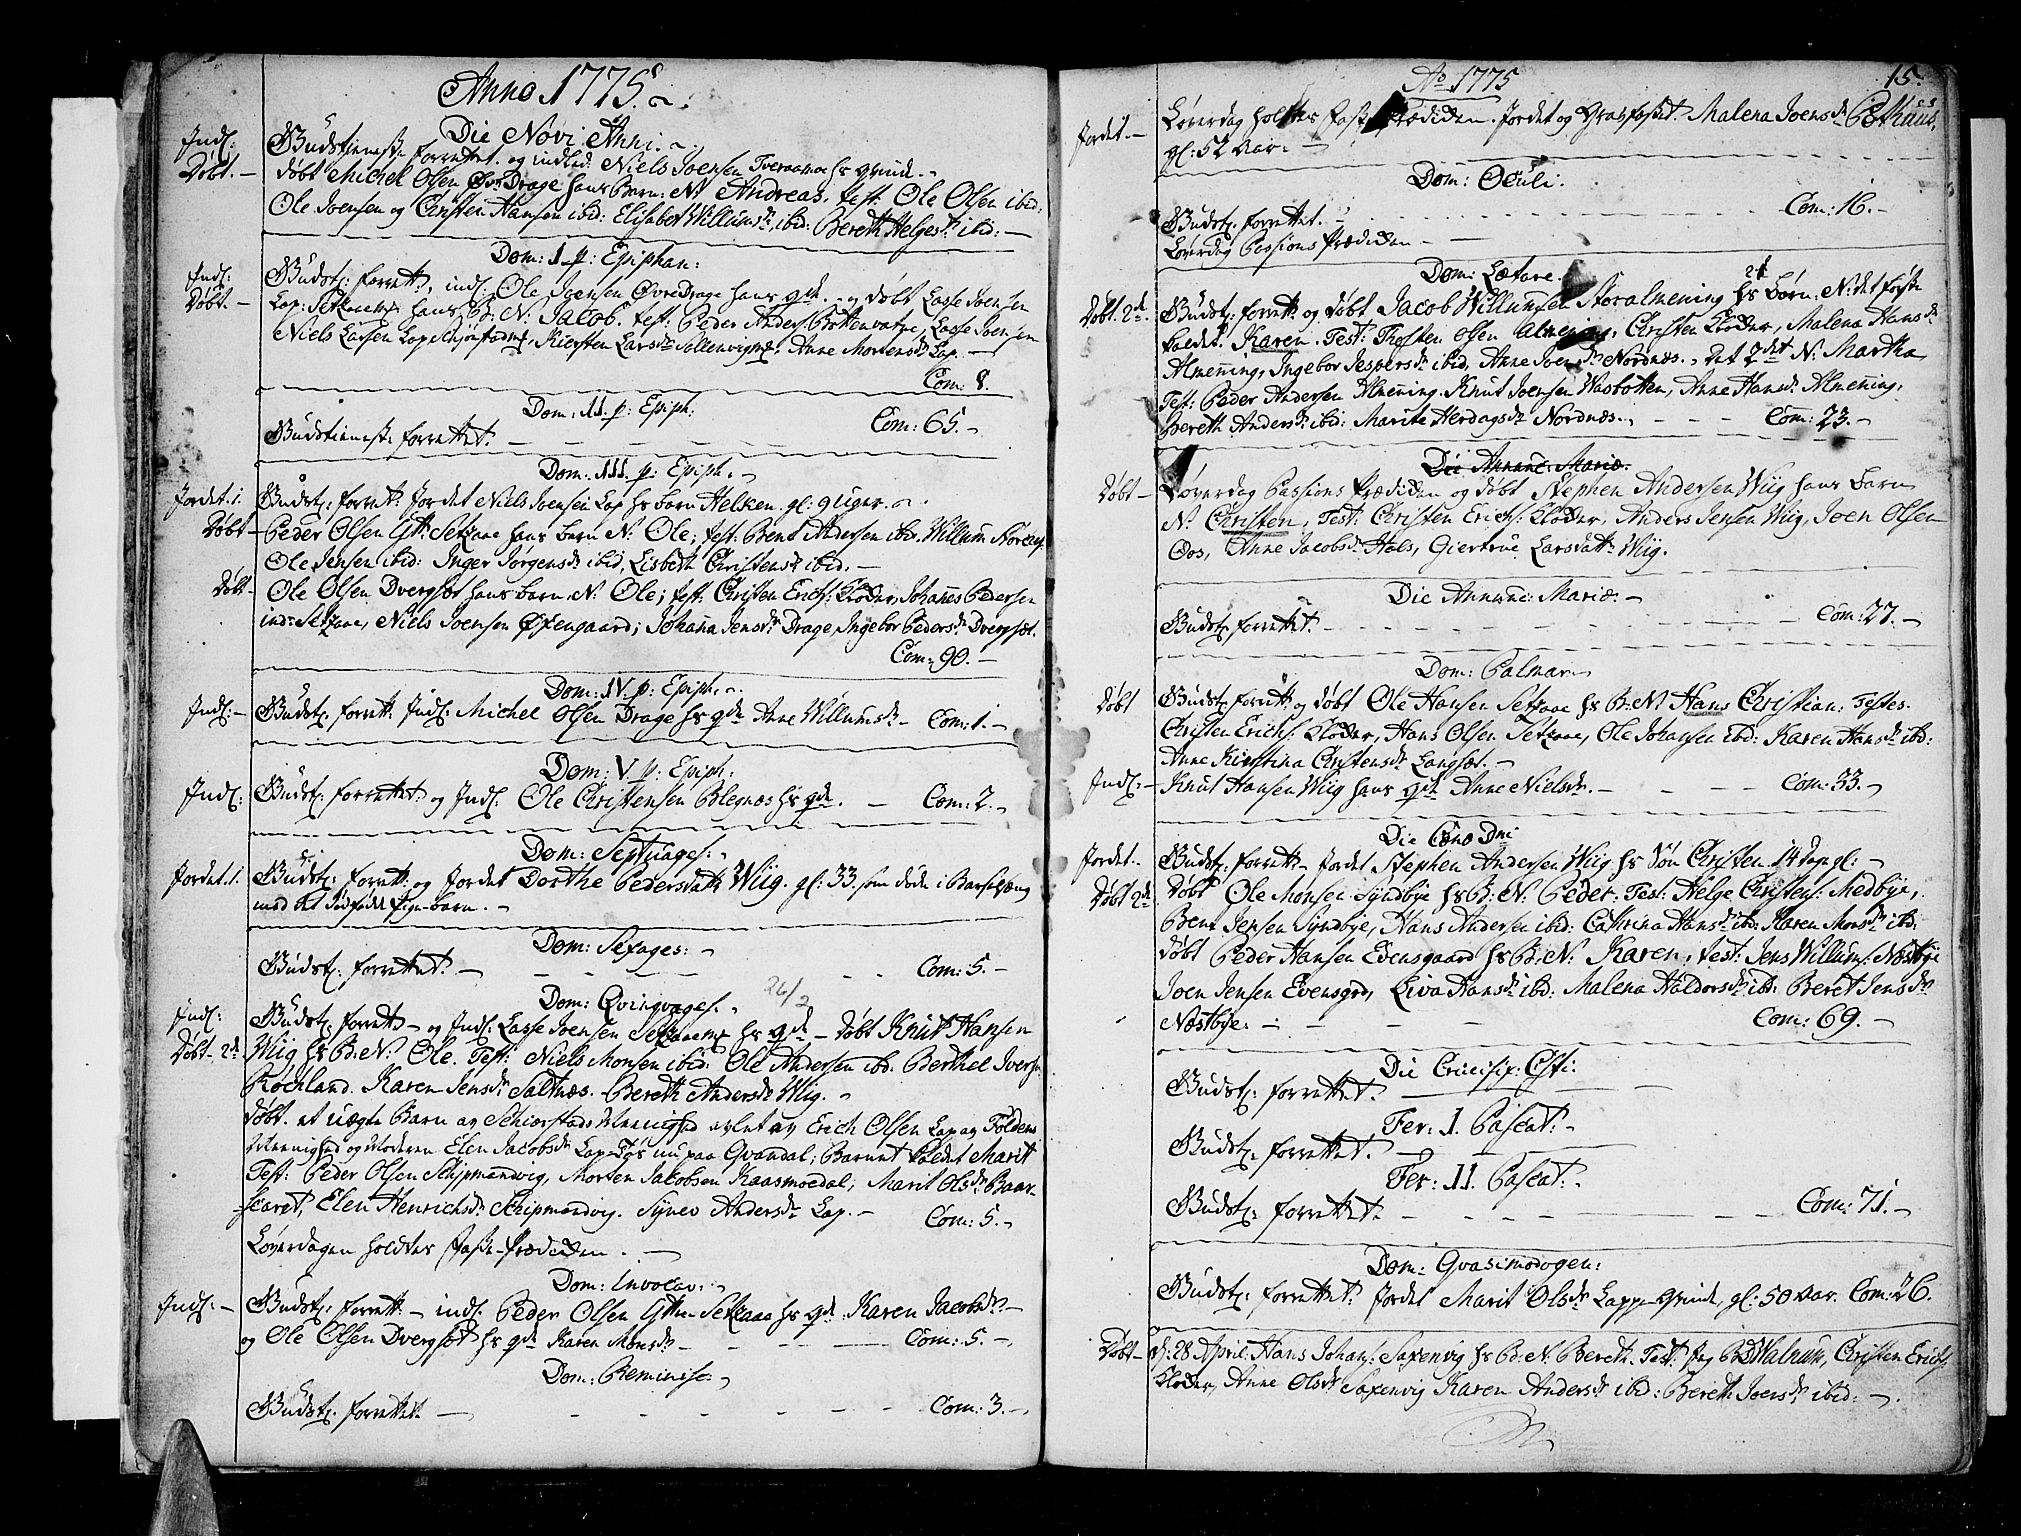 Anno 1775.
Die Novi Anni.
Indl:
Gudstienest: forrettet. og indled: Niels Joensen Tveraamoe hs qvinde.
Døbt. –
døbt Michel Olsen Drage hans Barn: N: Andreas. test: Ole Olsen ibid:
Ole Joensen og Christen Hansen ibid: Elisabet Willumsdr ibid: Bereth Helgesdr ibid: –
Dom: 1. p: Epiphan:
Indl:
Gudst: forrett, indl: Ole Joensen Øvre Drage hans qde. og døbt Lasse Joensen
Døbt. –
Lap: hans B: N: Jacob. test: Peder Anders: Bottenvatne, Lasse Joensen
Niels Larsen Lap, Kiersten Larsdr, Anne Mortensdr Lap. –
Com: 8.
Dom: 11. p: Epiph:
Gudstienest: forrettet. – – – – Com: 65. –
Dom: 111. p: Epiph.
Jordet. 1.
Gudst: forrett: Jordet Niels Joensen Lap hs barn Helken. gl: 9 uger.
Døbt –
Peder Olsen Ytt: Setzaae hans barn N: Ole; test: Bent Andersen ibd. Willum
Ole Jensen ibid: Inger Jørgensdr ibid, Lisbeth Christensdr ibid. –
Døbt –
Ole Olsen Dvergsæt hans barn N: Ole; test: Christen Erichs: Kloder, Johanes Pedersen
ind: Setzaae, Niels Joensen Øxengaard; Johana Jensdr Drage, Ingebor Pedersdr Dvergsæt.
Com: 90. –
Dom: 1V. p: Epiph.
Indl: –
Gudst: forrett: Indl: Michel Olsen Drage hs qde Anne Willumsdr – Com: 1. –
Dom: V. p: Epiph:
Indl:
Gudst: forrettet: og Indl: Ole Christensen Blegnæs hs qde. – Com: 2.
Dom: Septuages:
Jordet. 1.
Gudst: forrett: og Jordet Dorthe Pedersdatter Wiig. gl: 33. som døde i Barselsæng
med et barn. –
Dom: Sexages:
Gudst: forrettet. – – – Com: 5. –
26/2
Dom: Qvinqvages:
Indl:
Gudst: forrett – og Indl: Lasse Joensen hs qde – Døbt Knut Hansen
Døbt – 2de
Wiig hs B: N: Ole. Test: Niels Monsen ibid: Ole Andersen ibd. Berthel Ivers:
Røchland. Karen Jensdr Saltnæs. Bereth Andersdr Wiig.
døbt. et uægte Barn av Schierstads Menighed avlet av Erich Olsen Lap av Foldens
Menighed og Moderen Elen Jacobsdr Lap Tøs nu paa Qvandal; Barnet kaldet Marit
Test: Peder Olsen Schipmandvig, Morten Jakobsen Kaasmoedal; Marit Olsdr Baar-
skaret, Elen Henrichsdr Schipmandvig. Synev Andersdr Lap. – Com: 5.
Løverdagen holdtes Faste-Prædiken. –
Dom: Invocav:
Indl: –
Gudst: forrett: – indl: Peder Olsen Ytter Setzaae hs qde Karen Jacobsdr –
og Ole Olsen Dvergsæt hs qde Karen Monsdr – – – Com: 5.
Dom: Reminisc:
Gudst: forrettet. – – – – – Com: 3. –
Ao 1775
15.
Jordet. –
Løverdag holdtes Faste Prædiken. Jordet og Gravfæstet Malena Joensdr
gl: 52 Aar. –
Dom: Oculi.
Gudst: forrettet. – – – Com: 16. –
Løverdag Passions Prædiken – –
Dom: Lætare.
Døbt. 2de.
Gudst: forrett: og døbt Jacob Willumsen Storalmening hs 2de Børn: N: det første
kaldet: Karen. Test: Thosten Olsen Almening, Christen Kloder, Malena Hansdr
Almening, Ingebor Jespersdr ibid, Anne Joensdr Nordnæs. det 2det N: Martha
Test: Peder Andersen Almening, Knut Joensen Wasbotten, Anne Hansdr Almening.
Bereth Andersdr ibid: Marite Herdagsdr Nordnæs. – – – Com: 23. –
Die Annunc: Mariæ.
Døbt –
Løverdag Passions Prædiken og døbt Stephen Andersen Wiig hans barn
N: Christen, Test: Christen Erichs: Kloder, Anders Jensen Wiig, Joen Olsen
Oos, Anne Jacobsdr Hals, Giertrue Larsdatter Wiig.
Die Annunc: Mariæ. –
Gudst: forrettet. – – – – Com: 27. –
Dom: Palmar
Døbt
Gudst: forrett: og døbt Ole Hansen Setzaae hs B: N: Hans Christian: Testes.
Christen Erichs: Kloder, Hans Olsen Setzaae, Ole Johansen ibd: Karen Hansdr ibd:
Anne Kirstina Christensdr Langsæt. –
Indl: –
Knut Hansen Wiig hans qde Anne Nielsdr. – – – Com: 33.
Die Cæno Dni
Jordet. –
Gudst: forrett – Jordet Stephen Andersen Wiig hs Søn Christen 14 dage gl: –
Døbt 2de
Døbt Ole Monsen Syndbye hs B: N: Peder. Test: Helge Christens: Medbye,
Bent Jensen Syndbye, Hans Andersen ibid: Cathrina Hansdr ibd: Karen Monsdr ibd:
døbt Peder Hansen Evensgaard hs B: N: Karen, test: Jens Willums: Næstbye
Joen Jensen Evensgrd, Liva Hansdr ibid: Malena Haldorsdr ibd: Beret Jensdr
Næstbye. – – – – Com: 69. –
Die Crucifix: Csti:
Gudst: forrettet. –
Fer: 1. Pascat: –
Gudst: forrettet. –
Fer: 11. Pascat: –
Gudst: forrettet. – – – – Com: 71. –
Dom: Qvasimodogen:
Gudst: forrettet. Jordet Marit Olsdr Lapp-qvinde, gl: 50 Aar. Com: 26.
Døbt –
d: 28 April: Hans Johans: Saxenvig hs B: N: Bereth. Test: Jeg, Christen Erichs:
Kloder, Anne Olsdr Saxenvig Karen Andersdr ibid: Bereth Joensdr ibid: –